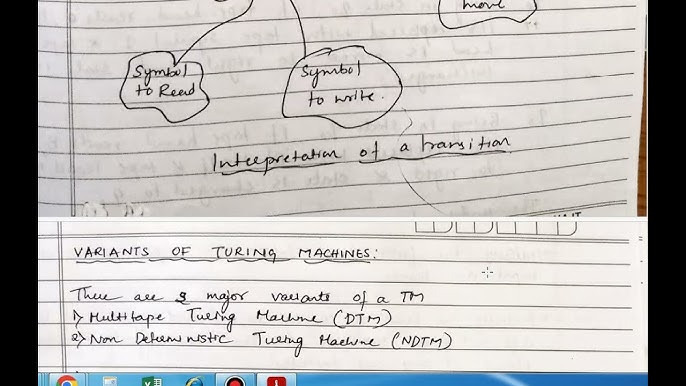 move
Symbol
to Read
Symbol
to write.
Interpretation of a transition
VARIANTS OF TURING MACHINES:
There are major variants of a TM
1) Multitape Turing Machine (DTM)
2) Non Deterministic Turing Machine (NDTM)